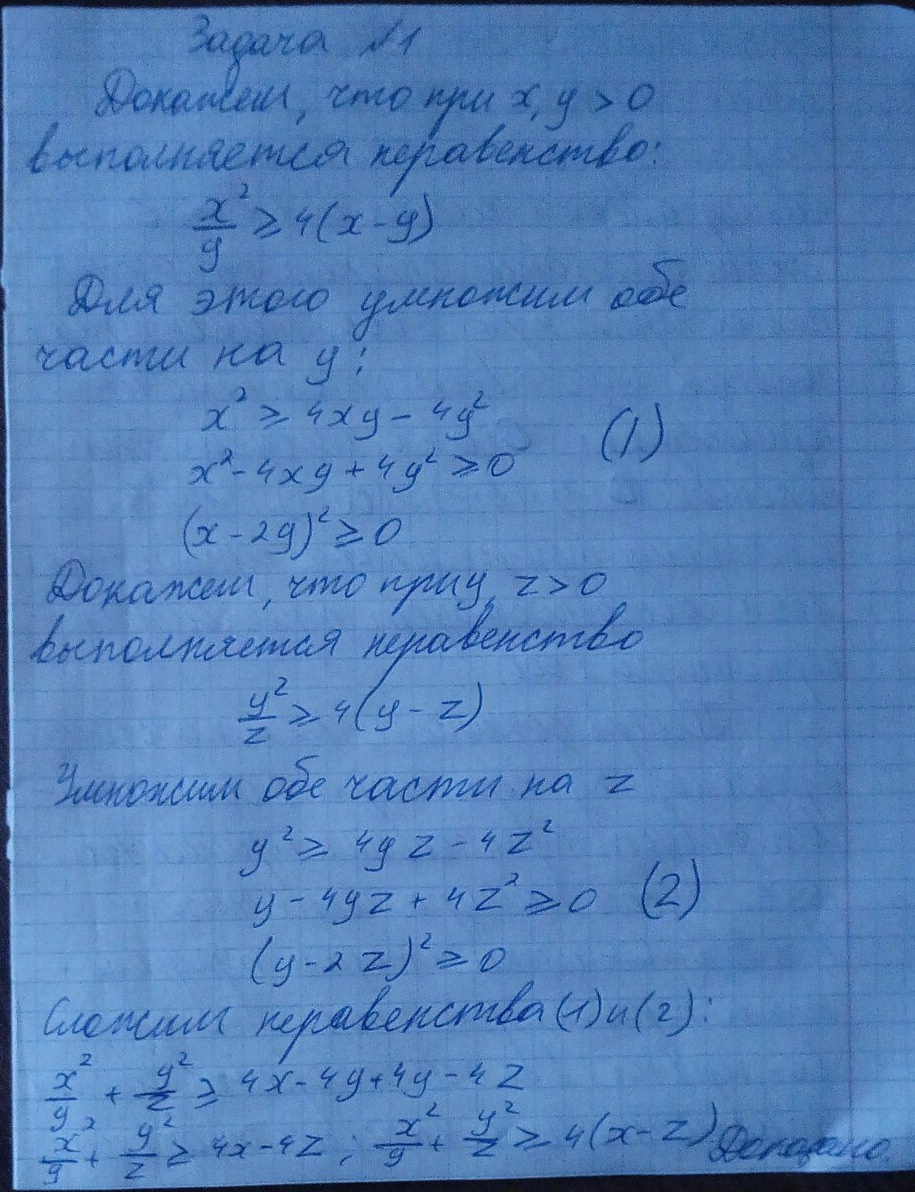 Задача №1
Докажем, что при x, y > 0
выполняется неравенство:
x²/y ≥ 4(x-y)
Для этого умножим обе
части на y:
x² ≥ 4xy - 4y²
(1)
x² - 4xy + 4y² ≥ 0
(x - 2y)² ≥ 0
Докажем, что при y, z > 0
выполняется неравенство
y²/z ≥ 4(y - z)
Умножим обе части на z
y² ≥ 4yz - 4z²
y - 4yz + 4z² ≥ 0 (2)
(y - 2z)² ≥ 0
Сложим неравенства (1) и (2):
x²/y + y²/z ≥ 4x - 4y + 4y - 4z
x²/y + y²/z ≥ 4x - 4z ; x²/y + y²/z ≥ 4(x - z) Доказано.